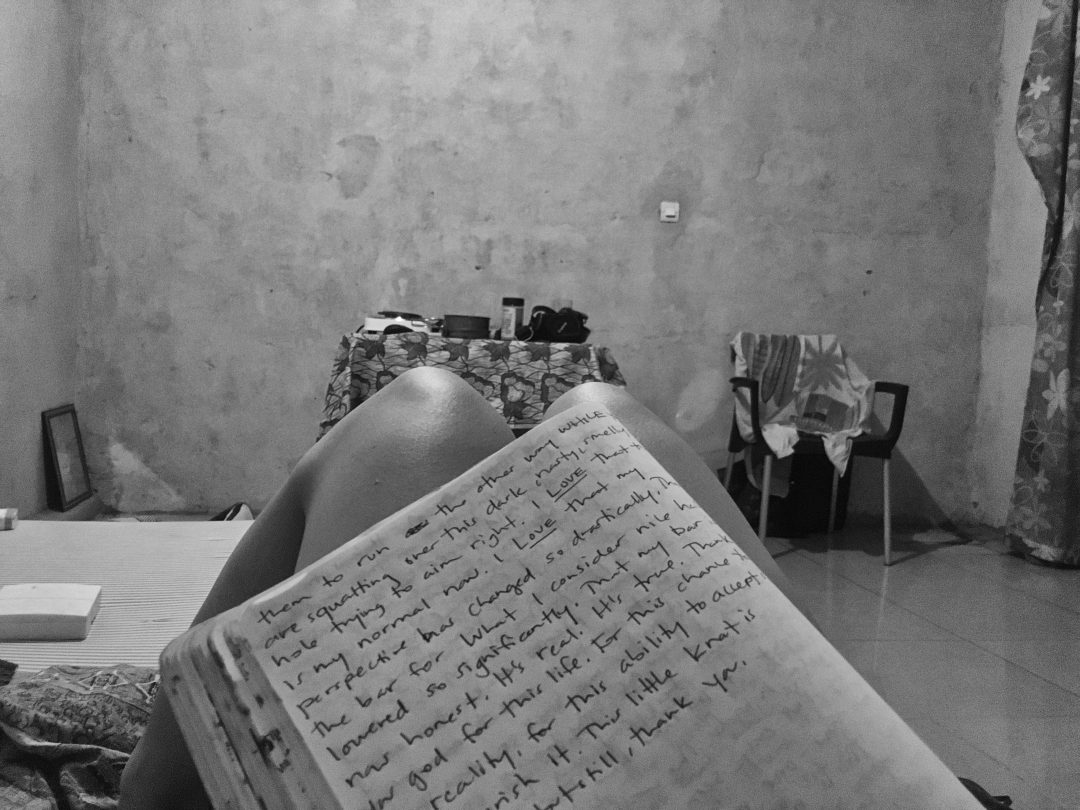 them to run the other way WHILE
are squatting over this dark, nasty, smelly
hole trying to aim right. I LOVE that
is my normal now. I LOVE that my
perspective has changed so drastically. Th
the bar for what I consider nice ha
lowered so significantly. That my bar
now honest. It's real. It's true. Thank
god for this life. For this chance
reality, for this ability to accept
rish it. This little knot is
but still, thank you.